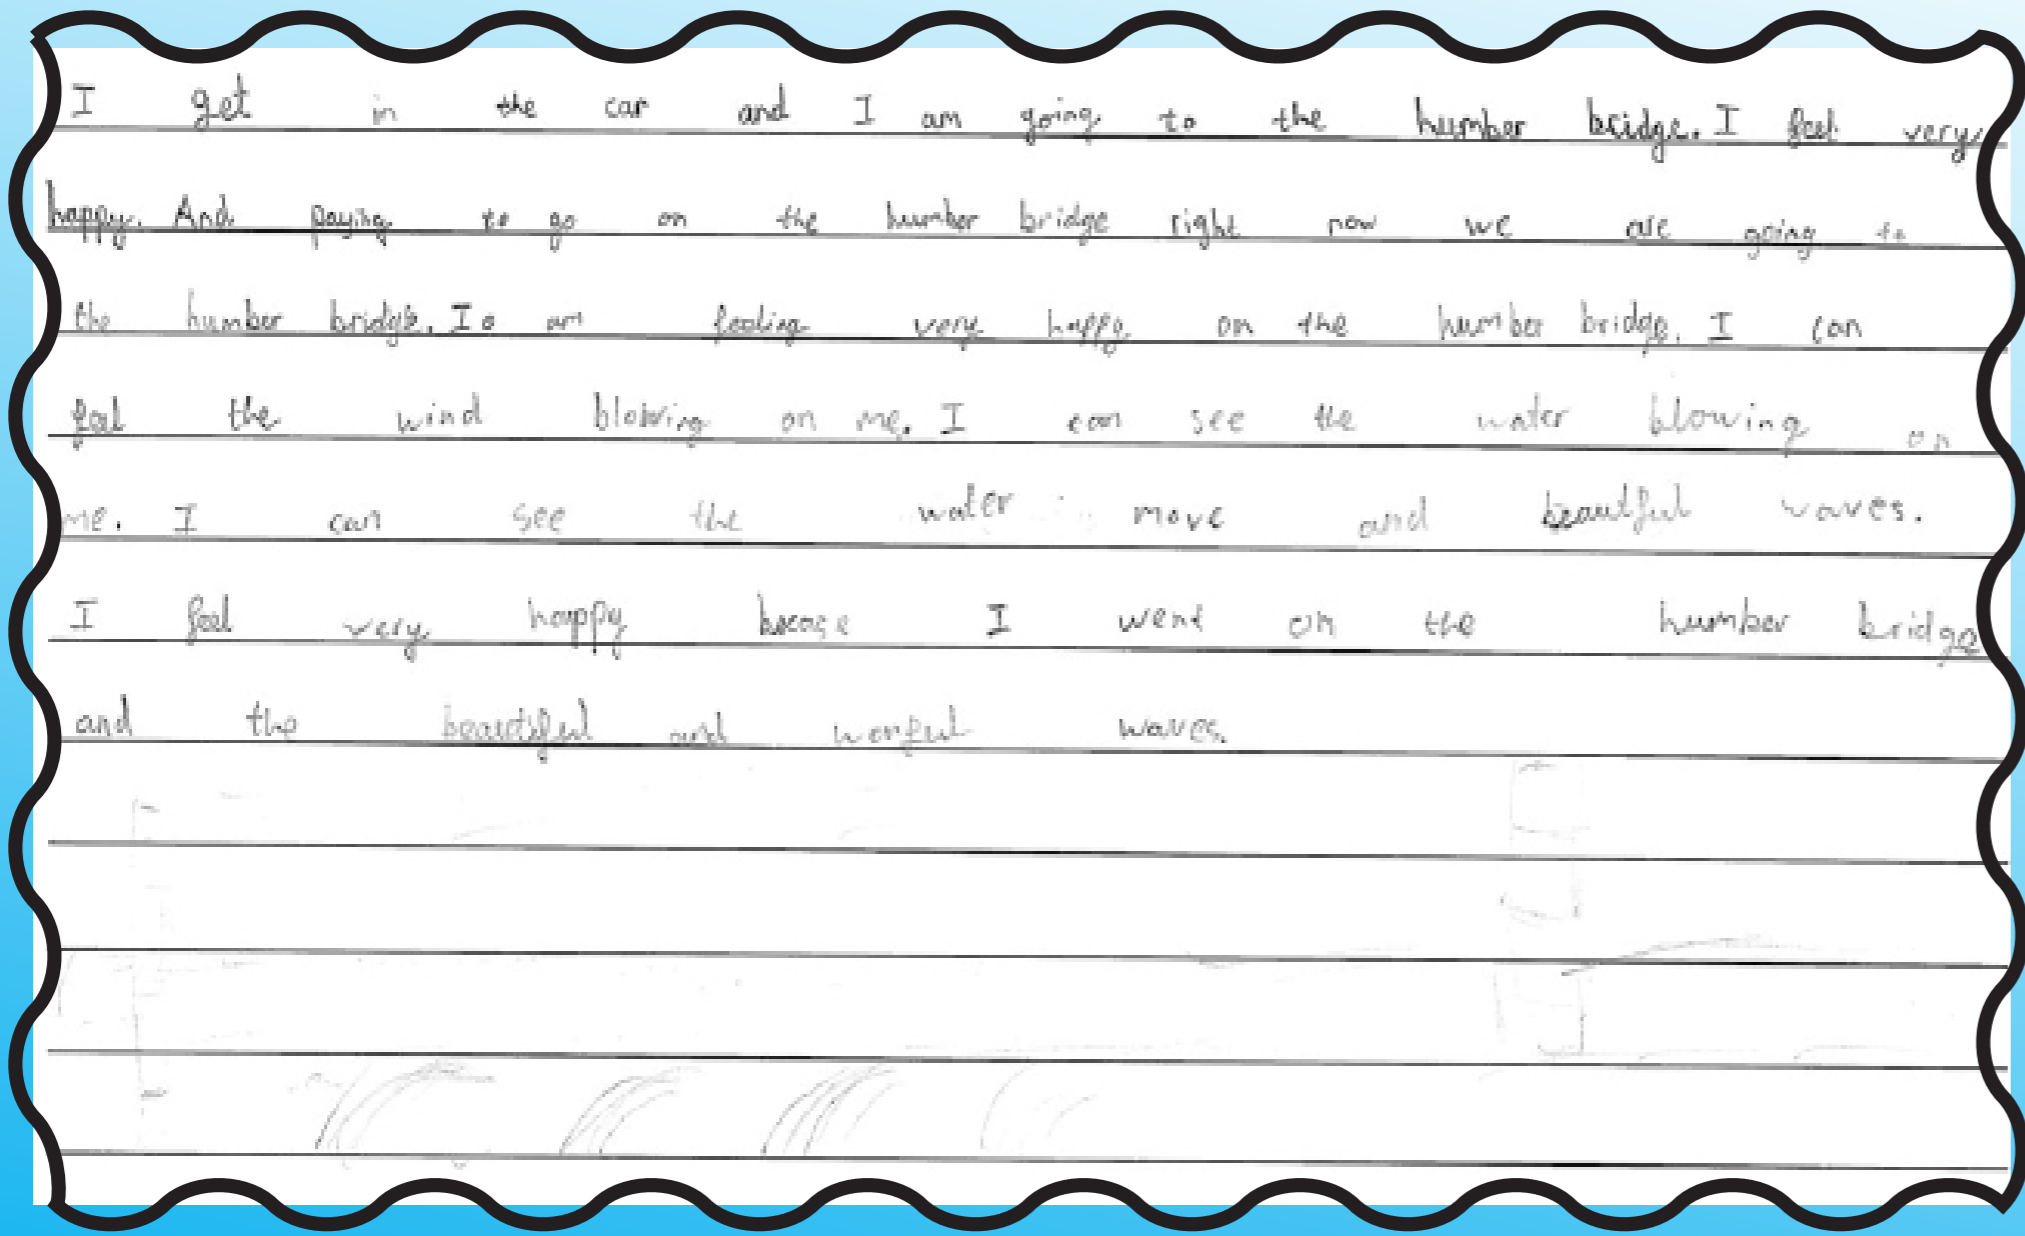 I get in the car and I am going to the humber bridge. I feel very
happy. And paying to go on the humber bridge right now we are going to
the humber bridge. I am feeling very happy on the humber bridge. I can
feel the wind blowing on me. I can see the water blowing on
me. I can see the water move and beautful waves.
I feel very happy becase I went on the humber bridge
and the beautiful and worful waves.